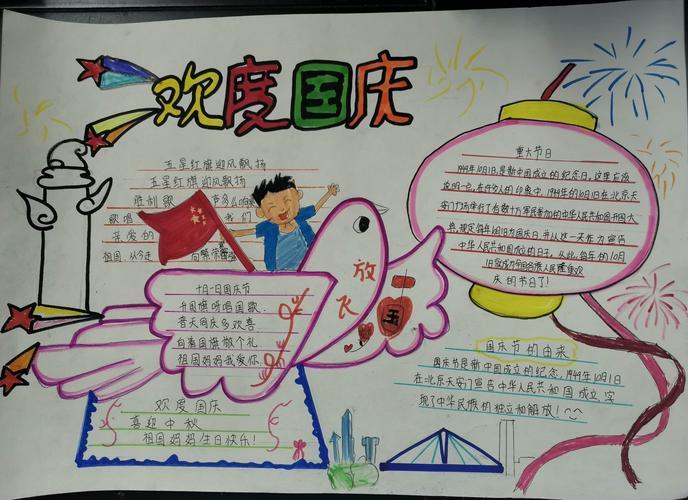 欢度国庆
五星红旗迎风飘扬
五星红旗迎风飘扬
胜利歌 多么响
歌唱 我们
亲爱的
祖国，从今走向繁荣
十月一日国庆节
升国旗呀唱国歌
普天同庆多欢喜
向着国旗敬个礼
祖国妈妈我爱你
放飞
欢度国庆
喜迎中秋
祖国妈妈生日快乐！
重大节日
1949年10月1日是新中国成立的纪念日，这里应该
说明一点，在许多人的印象中，1949年的10月1日在北京天
安门广场举行了有数十万军民参加的中华人民共和国开国大
典，规定每年10月1日为国庆日，并从这一天作为宣告
中华人民共和国成立的日子，从此，每年的10月
1日就成为全国各族人民隆重欢
庆的节日了！
国庆节的由来
国庆节是新中国成立的纪念，1949年10月1日
在北京天安门宣告中华人民共和国成立，实
现了中华民族的独立和解放！